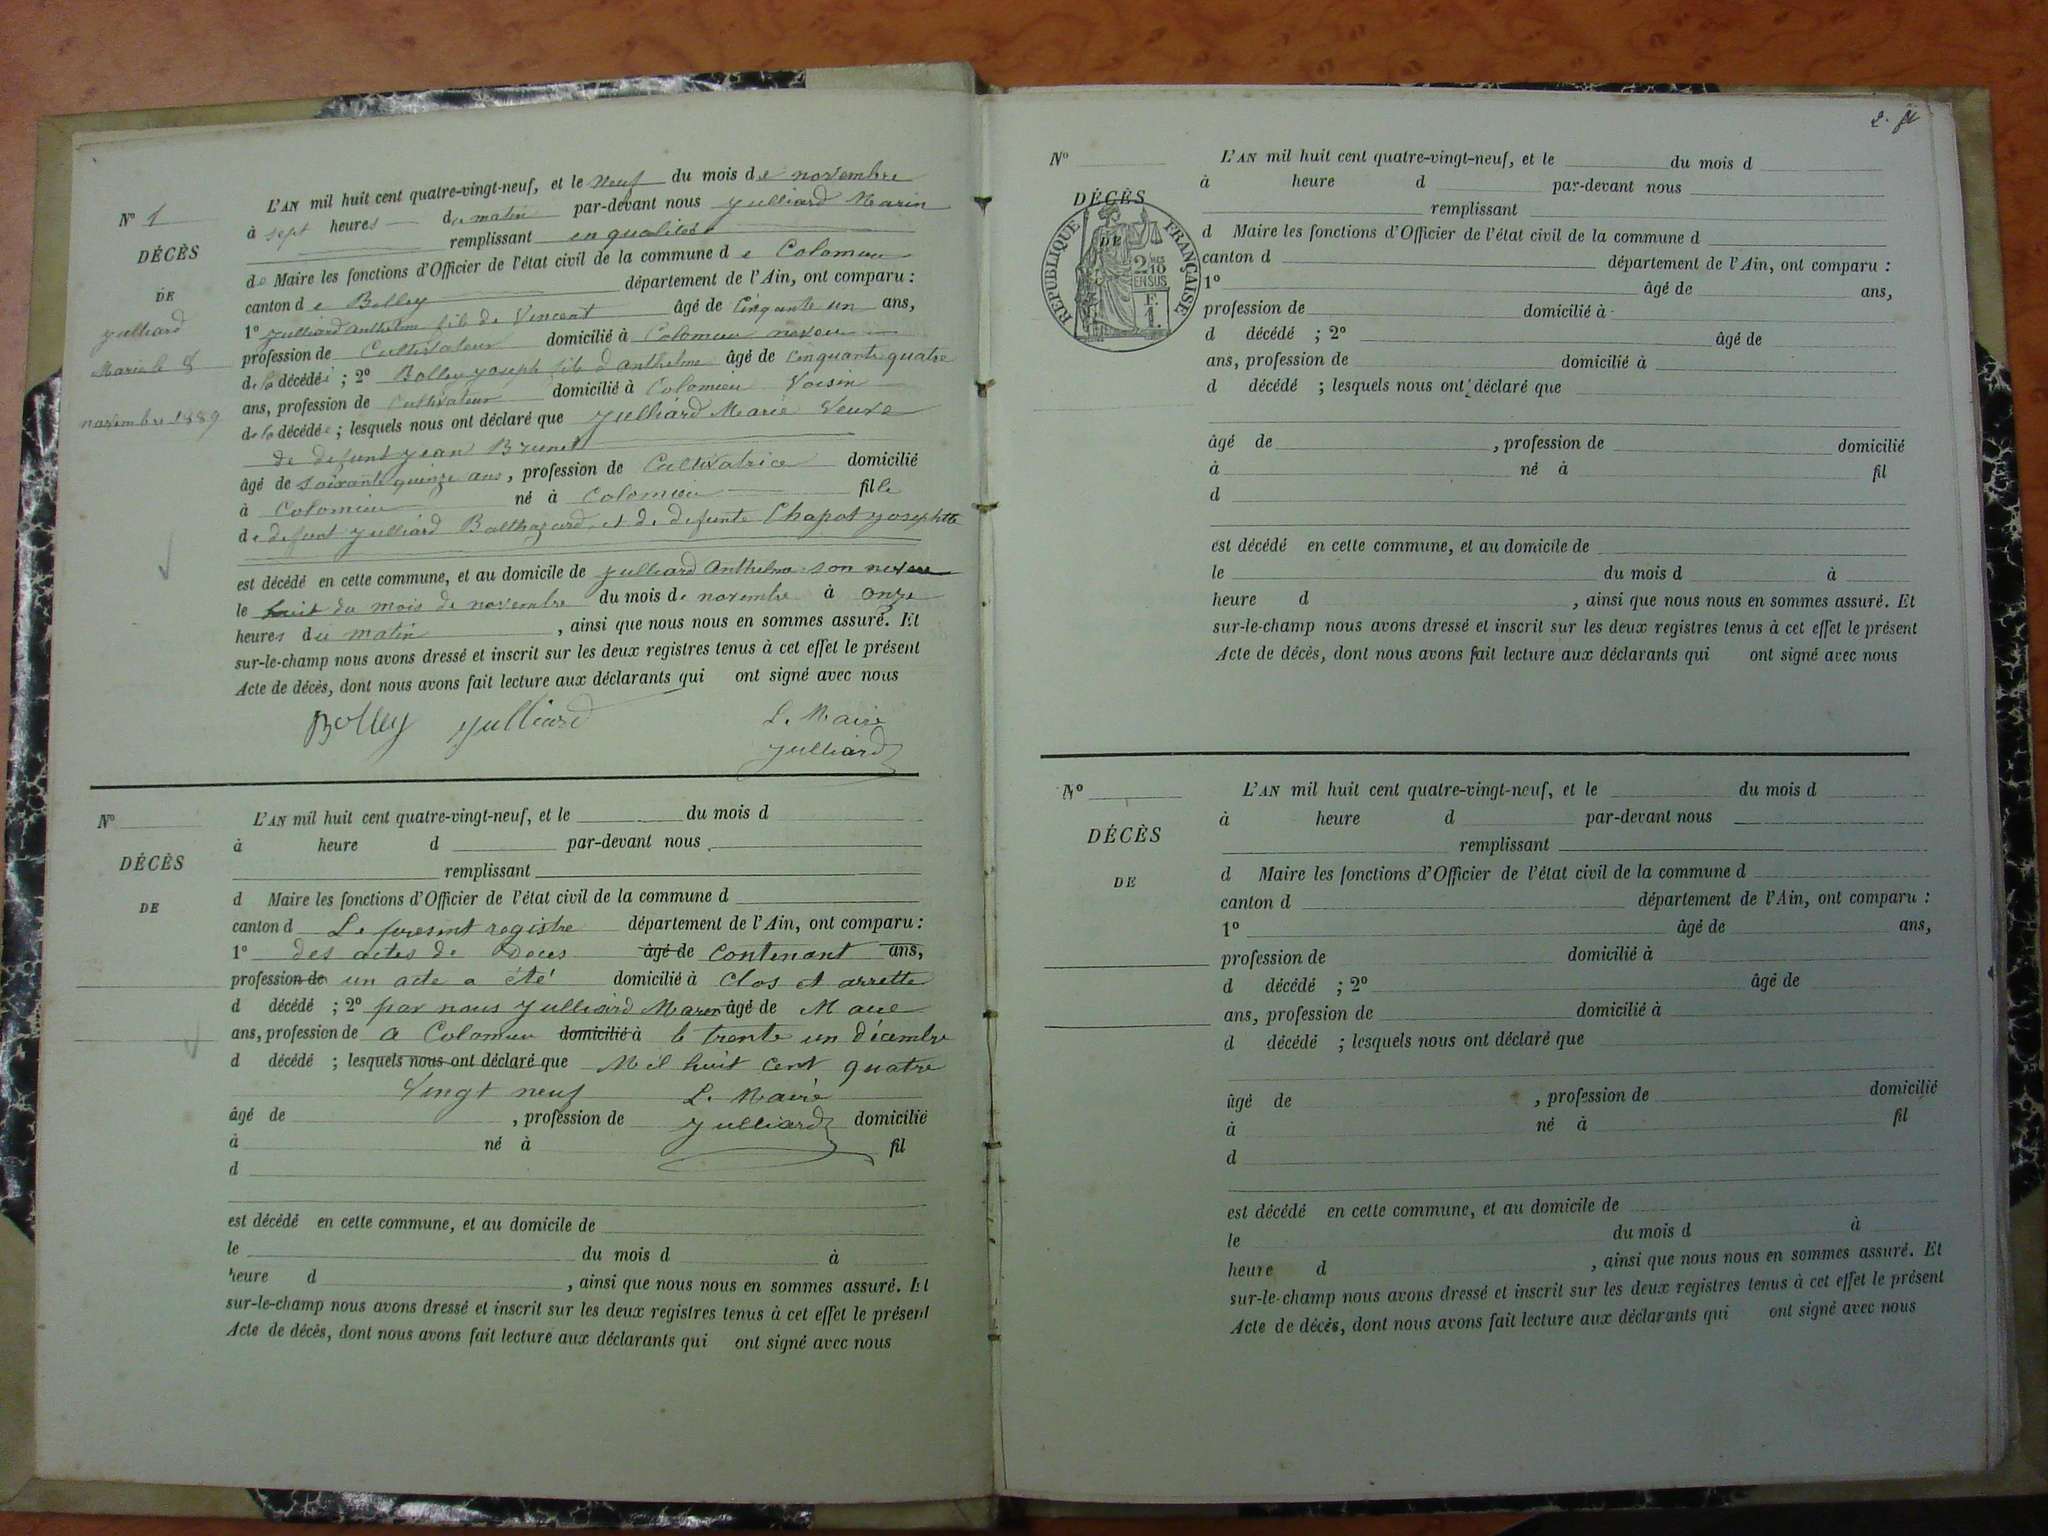 N° 1
DÉCÈS
DE
Julliard
Marie le 8
novembre 1889
L'AN mil huit cent quatre-vingt-neuf, et le neuf du mois de novembre
à sept heures du matin par-devant nous Julliard Marin
remplissant en qualité
de Maire les fonctions d'Officier de l'état civil de la commune de Colomieu
canton de Belley département de l'Ain, ont comparu :
1° Julliard Anthelme fils de Vincent âgé de Cinquante un ans,
profession de Cultivateur domicilié à Colomieu neveu
de la décédée ; 2° Bolley Joseph fils d'Anthelme âgé de Cinquante quatre
ans, profession de Cultivateur domicilié à Colomieu Voisin
de la décédée ; lesquels nous ont déclaré que Julliard Marie Veuve
de defunt Jean Brunet
âgé de Soixante quinze ans, profession de Cultivatrice domicilié
à Colomieu né à Colomieu fille
de defunt Julliard Balthazard et de defunte Chapot Josephte
est décédé en cette commune, et au domicile de Julliard Anthelme son neveu
le huit du mois de novembre du mois de novembre à onze
heures du matin , ainsi que nous nous en sommes assuré. Et
sur-le-champ nous avons dressé et inscrit sur les deux registres tenus à cet effet le présent
Acte de décès, dont nous avons fait lecture aux déclarants qui ont signé avec nous
Bolley Julliard Le Maire
Julliard
N°
DÉCÈS
DE
L'AN mil huit cent quatre-vingt-neuf, et le du mois d
à heure d par-devant nous
remplissant
d Maire les fonctions d'Officier de l'état civil de la commune d
canton d Le present registre département de l'Ain, ont comparu :
1° des actes de Deces âgé de contenant ans,
profession de un acte a été domicilié à clos et arretté
d décédé ; 2° par nous Julliard Marin âgé de Maire
ans, profession de a Colomieu domicilié à le trente un décembre
d décédé ; lesquels nous ont déclaré que Mil huit cent quatre
Vingt neuf Le Maire
âgé de , profession de Julliard domicilié
à né à fil
d
est décédé en cette commune, et au domicile de
le du mois d à
heure d , ainsi que nous nous en sommes assuré. Et
sur-le-champ nous avons dressé et inscrit sur les deux registres tenus à cet effet le présent
Acte de décès, dont nous avons fait lecture aux déclarants qui ont signé avec nous
2.
N°
DÉCÈS
DE
RÉPUBLIQUE FRANÇAISE
2 MES
10
EN SUS
F.
1.
L'AN mil huit cent quatre-vingt-neuf, et le du mois d
à heure d par-devant nous
remplissant
d Maire les fonctions d'Officier de l'état civil de la commune d
canton d département de l'Ain, ont comparu :
1° âgé de ans,
profession de domicilié à
d décédé ; 2° âgé de
ans, profession de domicilié à
d décédé ; lesquels nous ont déclaré que
âgé de , profession de domicilié
à né à fil
d
est décédé en cette commune, et au domicile de
le du mois d à
heure d , ainsi que nous nous en sommes assuré. Et
sur-le-champ nous avons dressé et inscrit sur les deux registres tenus à cet effet le présent
Acte de décès, dont nous avons fait lecture aux déclarants qui ont signé avec nous
N°
DÉCÈS
DE
L'AN mil huit cent quatre-vingt-neuf, et le du mois d
à heure d par-devant nous
remplissant
d Maire les fonctions d'Officier de l'état civil de la commune d
canton d département de l'Ain, ont comparu :
1° âgé de ans,
profession de domicilié à
d décédé ; 2° âgé de
ans, profession de domicilié à
d décédé ; lesquels nous ont déclaré que
âgé de , profession de domicilié
à né à fil
d
est décédé en cette commune, et au domicile de
le du mois d à
heure d , ainsi que nous nous en sommes assuré. Et
sur-le-champ nous avons dressé et inscrit sur les deux registres tenus à cet effet le présent
Acte de décès, dont nous avons fait lecture aux déclarants qui ont signé avec nous